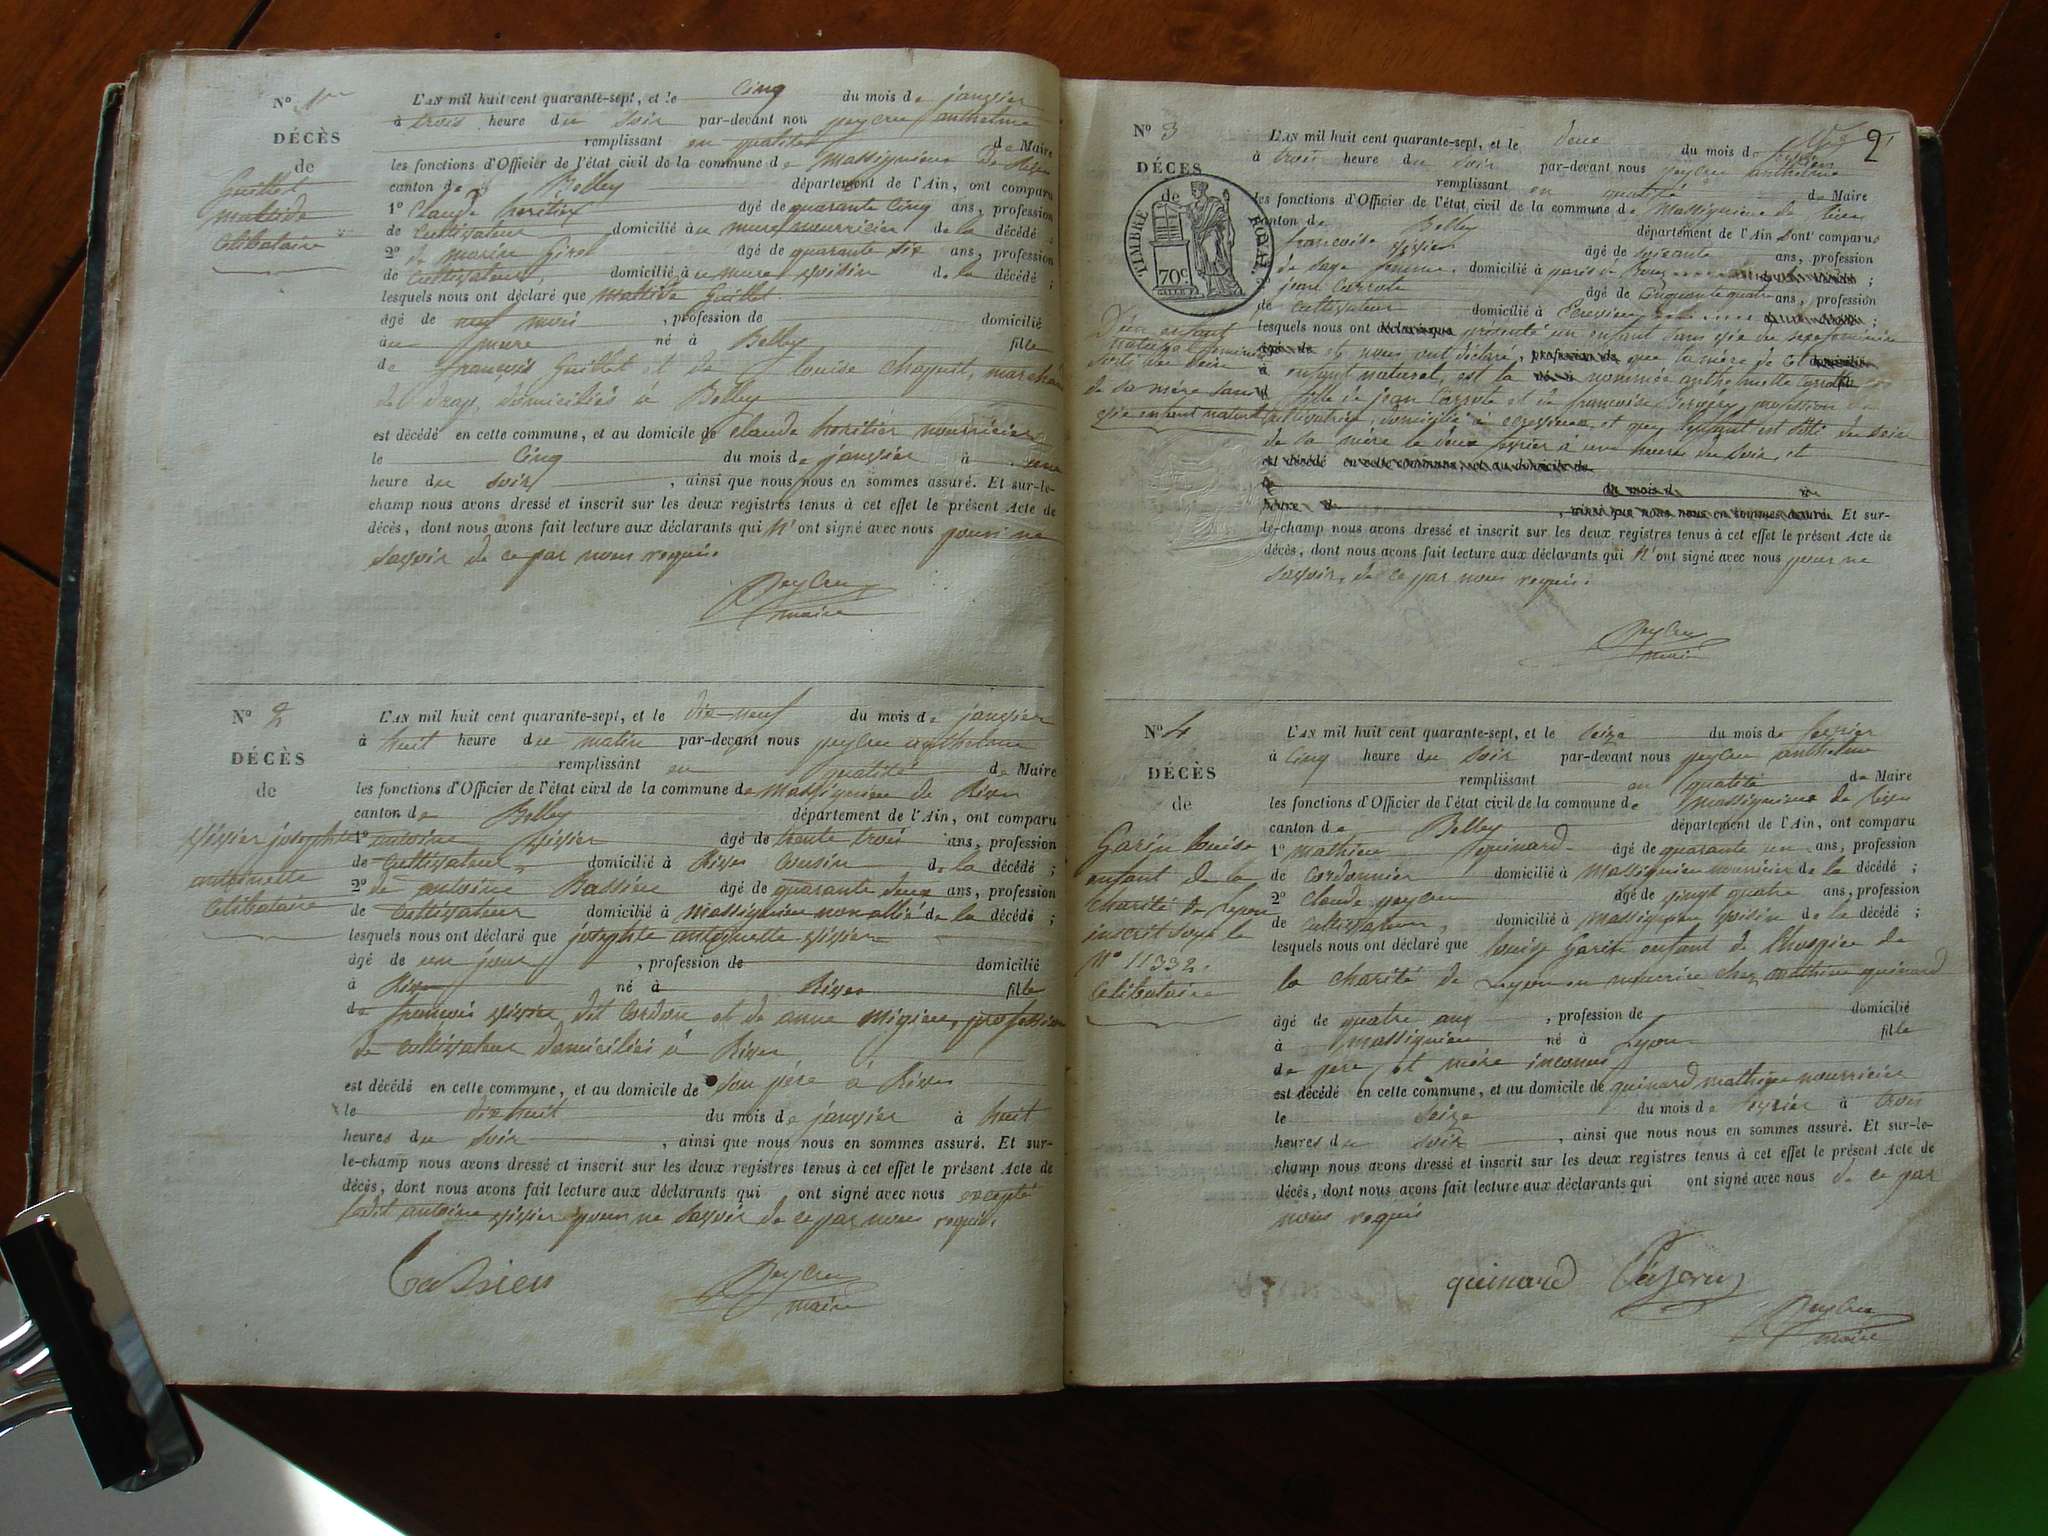 N° 1er
DÉCÈS
de
Guillet
matilde
Celibataire
L'AN mil huit cent quarante-sept, et le cinq du mois de janvier
à trois heure du soir par-devant nou peycru anthelme
remplissant en qualité de Maire
les fonctions d'Officier de l'état civil de la commune de Massignieu de Rives
canton de Belley département de l'Ain, ont comparu
1° Claude heritier âgé de quarante cinq ans, profession
de Cultivateur domicilié à nourricier de la décédé ;
2° de marin Giret âgé de quarante six ans, profession
de Cultivateur, domicilié à voisin de la décédé ;
lesquels nous ont déclaré que Matilde Guillet
âgé de neuf mois , profession de domicilié
né à Belley fille
de françois Guillet et de louise chapuit, marchand
de drap, domiciliés à Belley
est décédé en cette commune, et au domicile de claude heritier nourricier
le Cinq du mois de janvier à une
heure du soir , ainsi que nous nous en sommes assuré. Et sur-le-
champ nous avons dressé et inscrit sur les deux registres tenus à cet effet le présent Acte de
décès, dont nous avons fait lecture aux déclarants qui n'ont signé avec nous pour ne
savoir de ce par nous requis.
Peycru
maire
N° 2
DÉCÈS
de
vivier josephte
antoinette
Celibataire
L'AN mil huit cent quarante-sept, et le dix-neuf du mois de janvier
à huit heure du matin par-devant nous peycru anthelme
remplissant en qualité de Maire
les fonctions d'Officier de l'état civil de la commune de Massignieu de Rives
canton de Belley département de l'Ain, ont comparu
1° antoine vivier âgé de trente trois ans, profession
de Cultivateur, domicilié à Rives Cousin de la décédé ;
2° de antoine Bassieu âgé de quarante deux ans, profession
de Cultivateur domicilié à Massignieu non allié de la décédé ;
lesquels nous ont déclaré que josephte antoinette vivier
âgé de un jour , profession de domicilié
à Rives né à Rives fille
de francois vivier dit Cordon et de anne profession
de Cultivateur domiciliés à Rives
est décédé en cette commune, et au domicile de son père à Rives
le dix huit du mois de janvier à huit
heures du soir , ainsi que nous nous en sommes assuré. Et sur-
le-champ nous avons dressé et inscrit sur les deux registres tenus à cet effet le présent Acte de
décès, dont nous avons fait lecture aux déclarants qui ont signé avec nous excepté
ledit antoine vivier pour ne savoir de ce par nous requis.
Peycru
maire
2
N° 3
DÉCÈS
de
TIMBRE ROYAL
70 c.
D'un enfant
naturel feminin
sorti du sein
de sa mère sans
vie enfant naturel
L'AN mil huit cent quarante-sept, et le deux du mois de fevrier
à trois heure du soir par-devant nous peycru anthelme
remplissant en qualité de Maire
les fonctions d'Officier de l'état civil de la commune de Massignieu de Rives
canton de Belley département de l'Ain sont comparus
francoise vivier âgé de soixante ans, profession
de sage femme, domicilié à ;
jean Carrote âgé de cinquante quatre ans, profession
de cultivateur domicilié à ;
lesquels nous ont déclaré que présenté un enfant sans vie du sexe feminin
âgé de et nous ont déclaré, profession de que la mère de cet domicilié
à enfant naturel, est la né à nommée anthelmette Carrote
fille de jean Carrote et de francoise profession de
cultivateur, domicilié à et que l'enfant est sorti du sein
de sa mère le deux fevrier à une heure du soir, et
est décédé en cette commune, et au domicile de
le du mois d à
heure d , ainsi que nous nous en sommes assuré. Et sur-
le-champ nous avons dressé et inscrit sur les deux registres tenus à cet effet le présent Acte de
décès, dont nous avons fait lecture aux déclarants qui n'ont signé avec nous pour ne
savoir, de ce par nous requis.
Peycru
maire
N° 4
DÉCÈS
de
Garin louise
enfant de la
charité de Lyon
inscrit sous le
N° 11332.
Celibataire
L'AN mil huit cent quarante-sept, et le seize du mois de fevrier
à cinq heure du soir par-devant nous peycru anthelme
remplissant en qualité de Maire
les fonctions d'Officier de l'état civil de la commune de Massignieu de Rives
canton de Belley département de l'Ain, ont comparu
1° mathieu quinard âgé de quarante un ans, profession
de Cordonnier domicilié à Massignieu nourricier de la décédé ;
2° claude peycru âgé de vingt quatre ans, profession
de Cultivateur, domicilié à Massignieu voisin de la décédé ;
lesquels nous ont déclaré que louise Garin enfant de l'hospice de
la charité de Lyon en nourrice chez mathieu quinard
âgé de quatre ans , profession de domicilié
à Massignieu né à Lyon fille
de pere et mère inconnus
est décédé en cette commune, et au domicile de quinard mathieu nourricier
le seize du mois de fevrier à trois
heures du soir , ainsi que nous nous en sommes assuré. Et sur-le-
champ nous avons dressé et inscrit sur les deux registres tenus à cet effet le présent Acte de
décès, dont nous avons fait lecture aux déclarants qui ont signé avec nous de ce par
nous requis
quinard Peycru
Peycru
maire